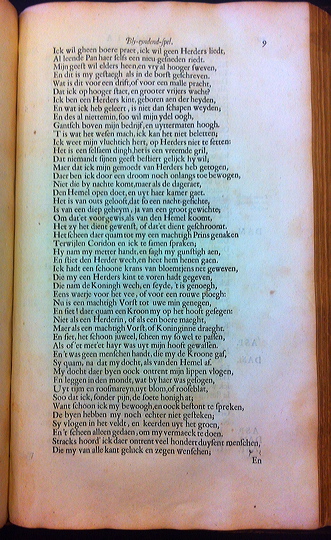 Bly-eyndend-spel. 9
Ick wil gheen boere praet, ick wil geen Herders liedt,
Al leende Pan haer selfs een nieu gesneden riedt.
Mijn geest wil elders heen, en vry al hooger sweven,
En dit is my gestaegh als in de borst geschreven.
Wat is dit voor een drift, of voor een malle pracht,
Dat ick op hooger staet, en grooter vrijers wacht?
Ick ben een Herders kint, geboren aen der heyden,
En wat ick heb geleert, is niet dan schapen weyden;
En des al niettemin, soo wil mijn ydel oogh,
Gantsch boven mijn bedrijf, en uyttermaten hoogh.
'T is wat het wesen mach, ick kan het niet beletten;
Ick weet mijn vluchtich hert, op Herders niet te setten:
Het is een selsaem dingh, het is een vreemde gril,
Dat niemandt sijnen geest bestiert gelijck hy wil;
Maer dat ick mijn gemoedt van Herders heb getogen,
Daer ben ick door een droom noch onlangs toe bewogen,
Niet die by nachte komt, maer als de dageraet,
Den Hemel open doet, en uyt haer kamer gaet.
Het is van outs gelooft, dat so een nacht-gesichte,
Is van een diep geheym, ja van een groot gewichte;
Om dat'et voorgewis, als van den Hemel koomt,
Het zy het dient gewenst, of dat'et dient geschroomt.
Het scheen daer quam tot my een machtigh Prins getraden
Terwijlen Coridon en ick te samen spraken;
Hy nam my metter handt, en sagh my gunstigh aen,
En stiet den Herder wech, en heet hem henen gaen.
Ick hadt een schoone krans van bloemtjens net geweven,
Die my een Herders kint te voren hadt gegeven,
Die nam de Koningh wech, en seyde, 't is genoegh,
Eens waerje voor het vee, of voor een rouwe ploegh:
Nu is een machtigh Vorst tot uwe min genegen,
En siet! daer quam een Kroon my op het hooft gesegen:
Niet als een Herderin, of als een boere maeght,
Maer als een machtigh Vorst, of Koninginne draeght.
En siet, het schoon juweel, scheen my so wel te passen,
Als of de meeter hayr was uyt mijn hooft gewassen.
En 't was geen menschen handt, die my de Kroone gaf,
Sy quam, na dat my docht, als van den Hemel af.
My docht daer byen oock ontrent mijn lippen vlogen,
En leggen in den mondt, wat by haer was gesogen,
Uyt rijm en roosmareyn, uyt blom, of roosselblat,
Soo dat ick, sonder pijn, de soete honigh at;
Want schoon ick my bewoogh, en oock bestont te spreken,
De byen hebben my noch echter niet gesteken;
Sy vlogen in het veldt, en keerden uyt het groen,
En 't scheen alleen gedaen, om my vermaeck te doen.
Stracks hoord' ick daer ontrent veel hondert duysent menschen,
Die my van alle kant geluck en zegen wenschen;
En